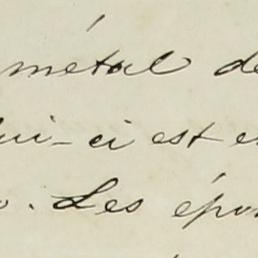 métal de
lui-ci est e
. Les épo